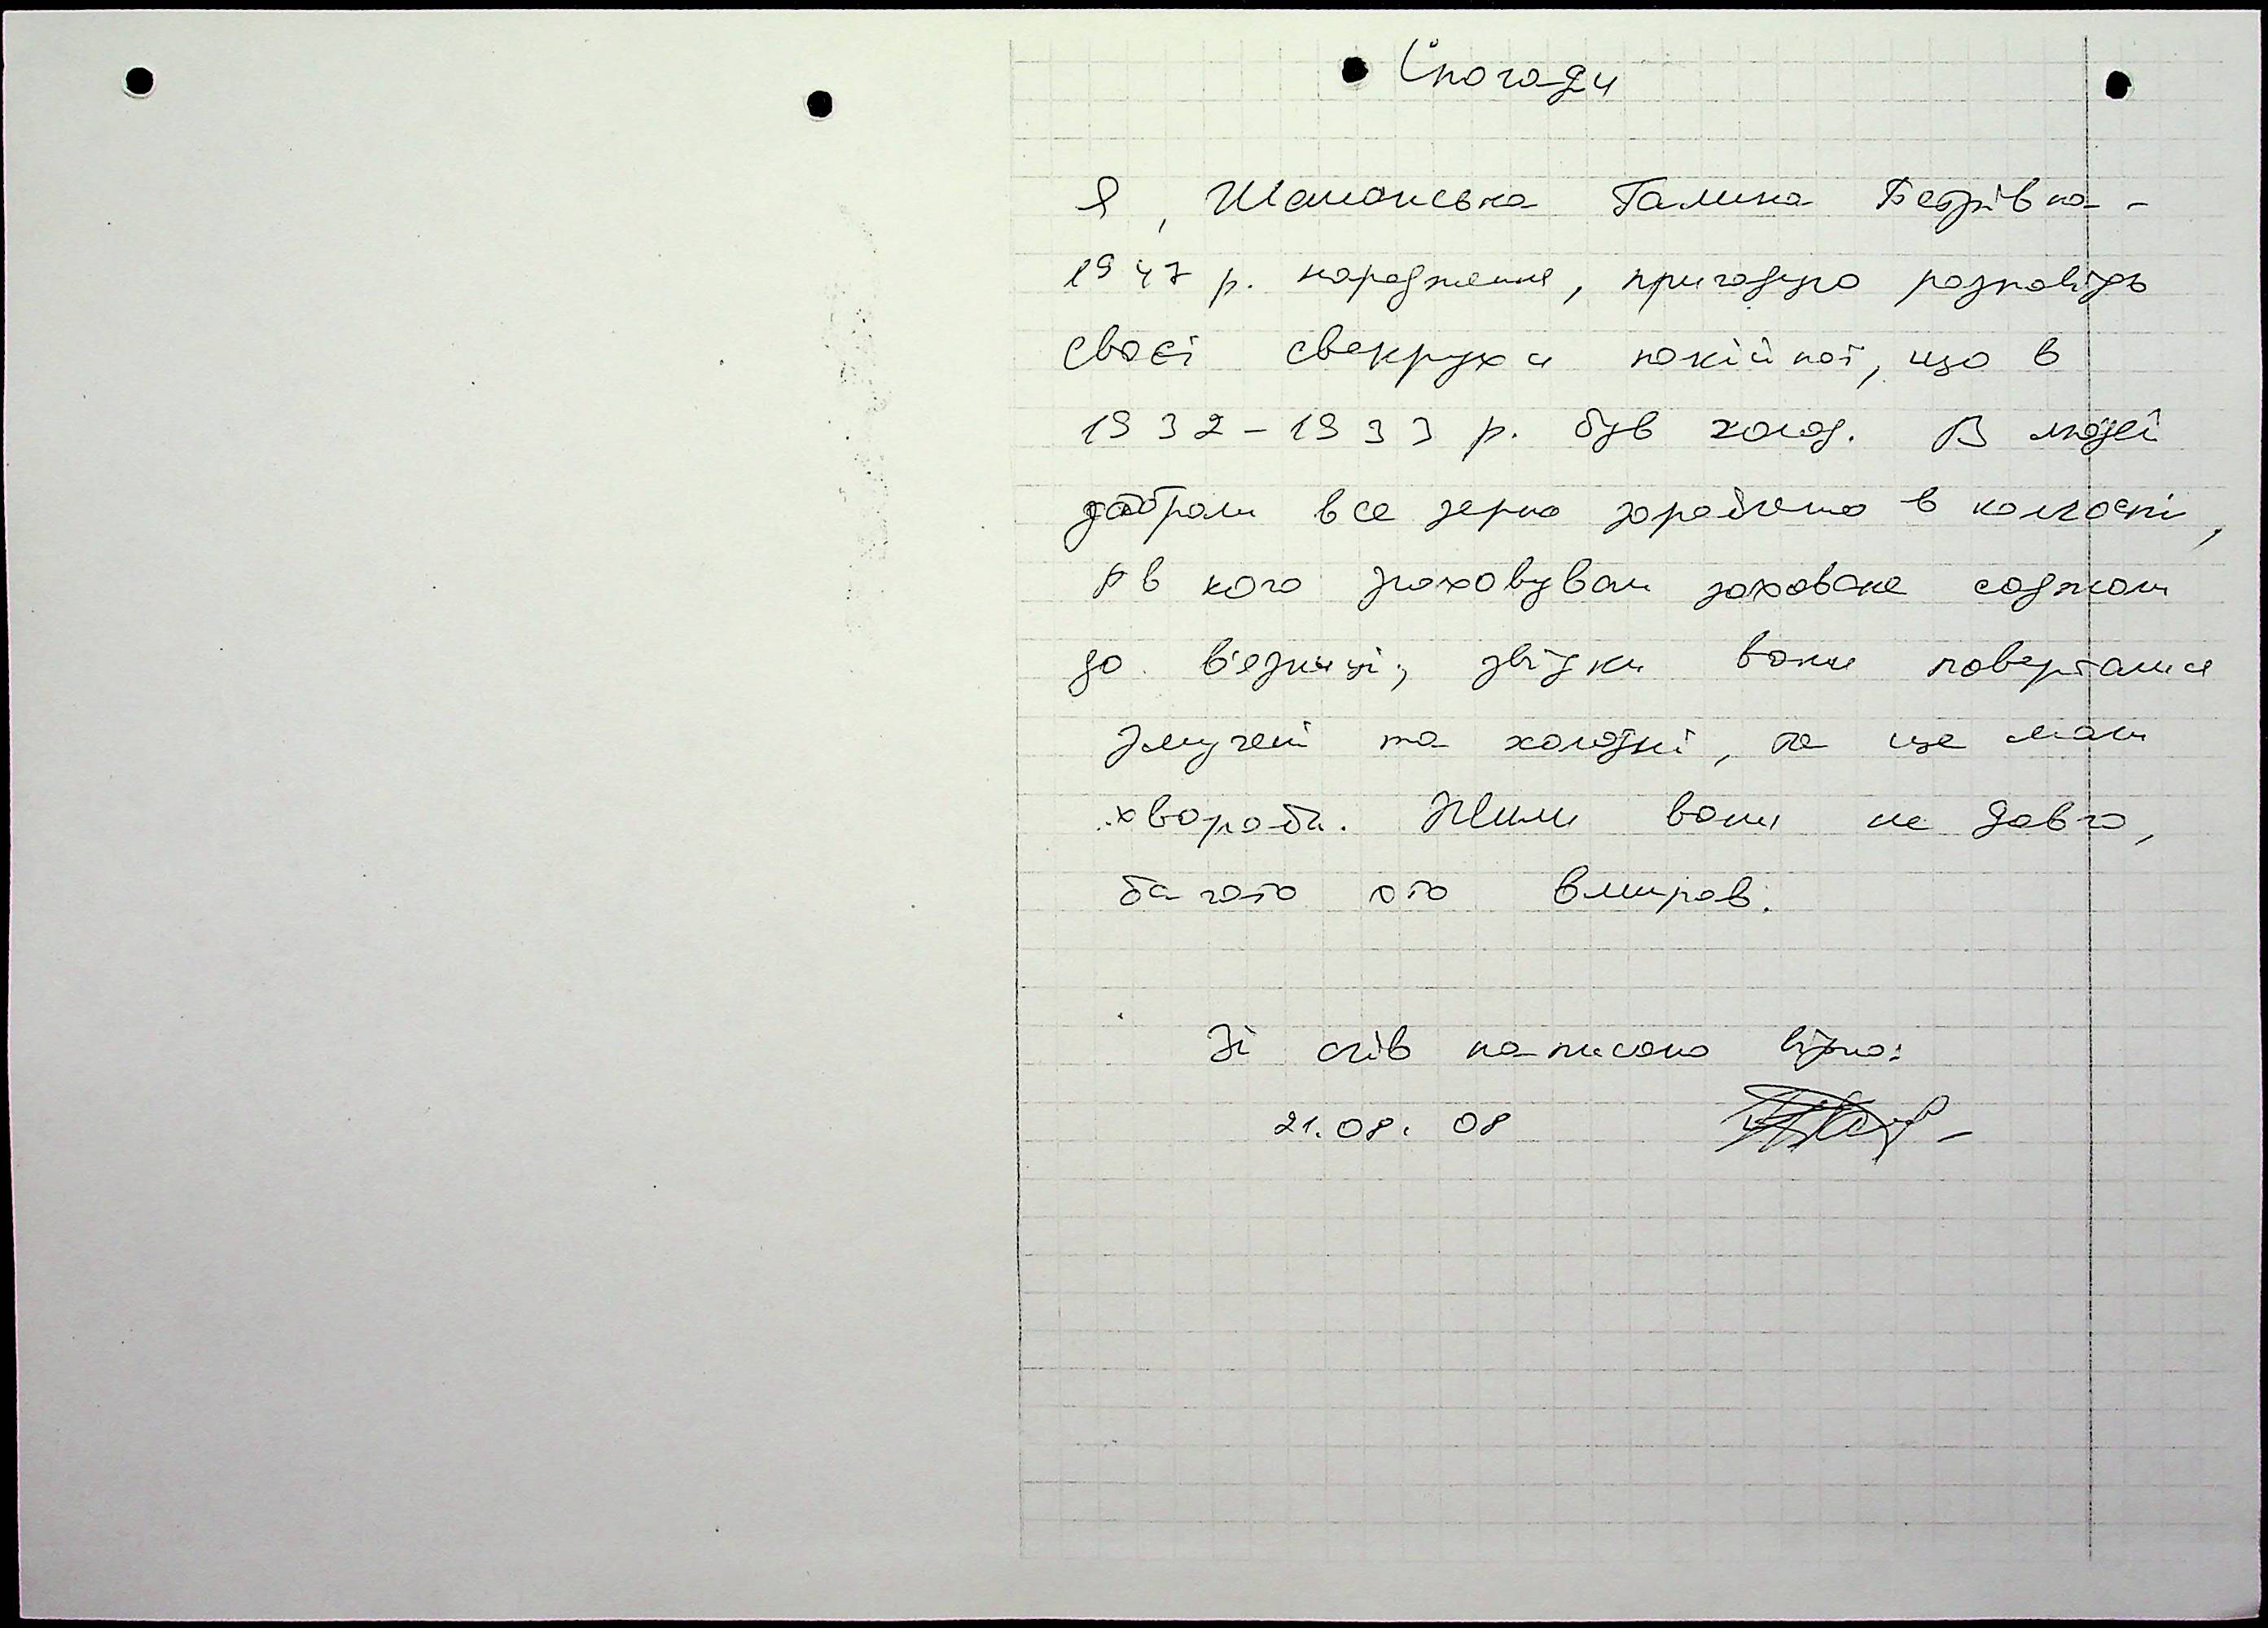 Спогади
Я, Шаманська Галина Петрівна -
1947 р. народження, пригадую розповідь
своєї свекрухи покійної, що в
1932-1933 р. був голод. В людей
забрали все зерно зароблено в колгоспі,
в кого знаходували заховане саджали
до в'язниці, звідки вони поверталися
змучені та холодні, та ще мали
хвороби. Жили вони не довго,
багато хто вмирав.
Зі слів написано вірно:
21.08.08